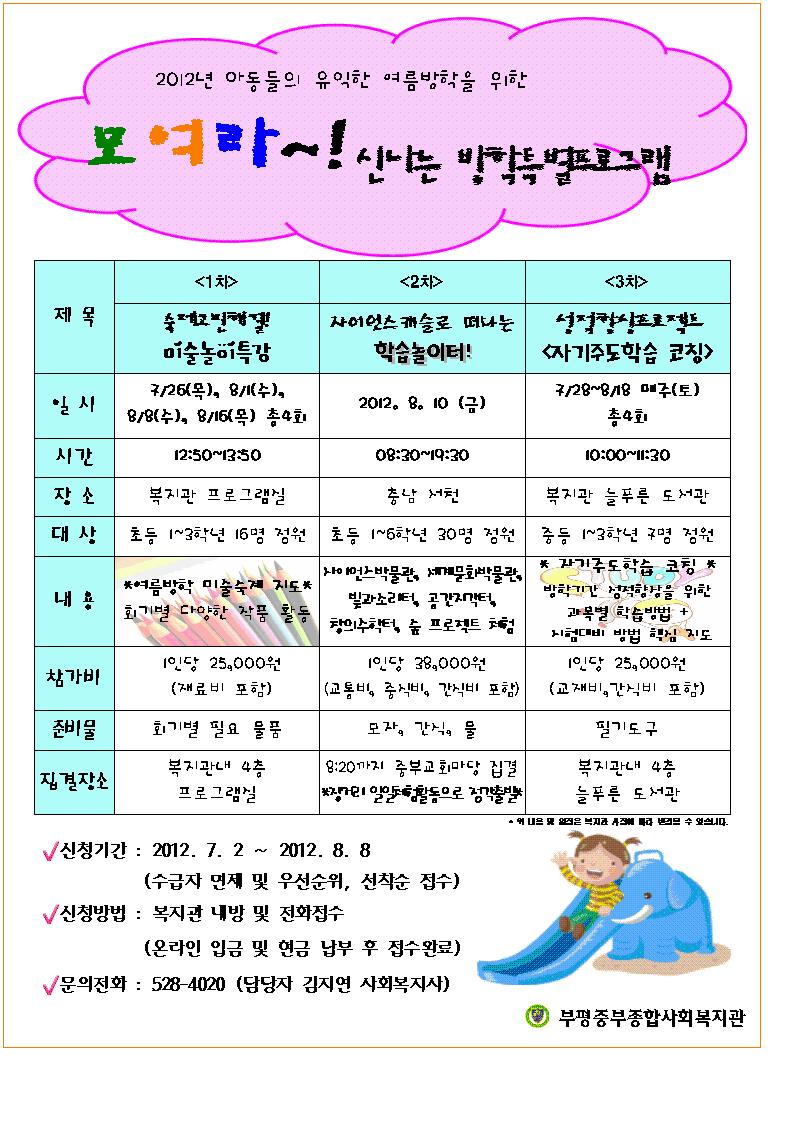 2012년 아동들의 유익한 여름방학을 위한
모여라~! 신나는 방학특별프로그램
제 목
<1차> <2차> <3차>
숙제고민해결! 사이언스캐슬로 떠나는 성적향상프로젝트
미술놀이특강 학습놀이터! <자기주도학습 코칭>
일 시
7/26(목), 8/1(수), 2012. 8. 10 (금) 7/28~8/18 매주(토)
8/8(수), 8/16(목) 총4회 총4회
시간 12:50~13:50 08:30~19:30 10:00~11:30
장 소 복지관 프로그램실 충남 서천 복지관 늘푸른 도서관
대 상 초등 1~3학년 16명 정원 초등 1~6학년 30명 정원 중등 1~3학년 7명 정원
내 용
*여름방학 미술숙제 지도*
회기별 다양한 작품 활동
사이언스박물관, 세계문화박물관,
빛과소리터, 공간지각터,
창의수학터, 숲 프로젝트 체험
* 자기주도학습 코칭 *
방학기간 성적향상을 위한
과목별 학습방법 +
시험대비 방법 핵심 지도
참가비
1인당 25,000원 1인당 38,000원 1인당 25,000원
(재료비 포함) (교통비, 중식비, 간식비 포함) (교재비,간식비 포함)
준비물 회기별 필요 물품 모자, 간식, 물 필기도구
집결장소
복지관내 4층 8:20까지 중부교회마당 집결 복지관내 4층
프로그램실 *장거리 일일체험활동으로 정각출발* 늘푸른 도서관
* 위 내용 및 일정은 복지관 사정에 따라 변경될 수 있습니다.
✓신청기간 : 2012. 7. 2 ~ 2012. 8. 8
(수급자 면제 및 우선순위, 선착순 접수)
✓신청방법 : 복지관 내방 및 전화접수
(온라인 입금 및 현금 납부 후 접수완료)
✓문의전화 : 528-4020 (담당자 김지연 사회복지사)
부평중부종합사회복지관